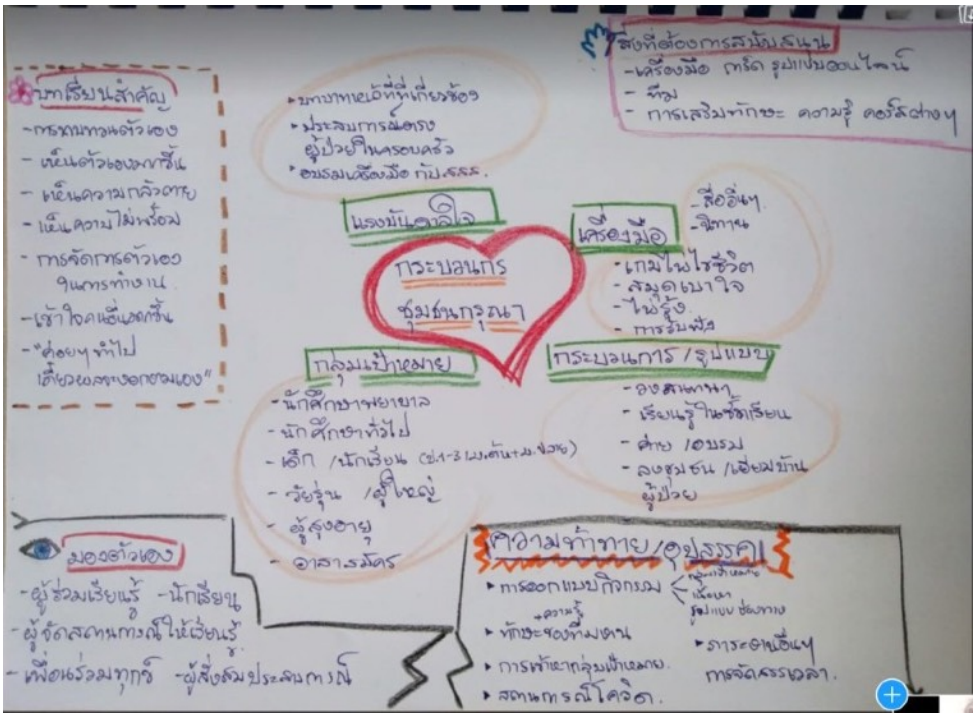 บทเรียนสำคัญ
-การทบทวนตัวเอง
- เห็นตัวเองมากขึ้น
- เห็นความกลัวตาย
- เห็นความไม่พร้อม
- การจัดการตัวเอง
ในการทำงาน
- เข้าใจคนอื่นมากขึ้น
- "ค่อยๆ ทำไป
เดี๋ยวผลจะงอกงามเอง"
• บทบาทหน้าที่ที่เกี่ยวข้อง
• ประสบการณ์ตรง
ผู้ป่วยในครอบครัว
• อบรมเครื่องมือ กับ สสส.
แรงบันดาลใจ
สิ่งที่ต้องการสนับสนุน
-เครื่องมือ การ์ด รูปแบบออนไลน์
- ทีม
- การเสริมทักษะ ความรู้ คอร์สต่างๆ
เครื่องมือ
- สื่ออื่นๆ
- นิทาน
- เกมไพ่ไขชีวิต
- สมุดเบาใจ
- ไพ่รุ้ง
- การรับฟัง
กระบวนกร
ชุมชนกรุณา
กลุ่มเป้าหมาย
- นักศึกษาพยาบาล
- นักศึกษาทั่วไป
- เด็ก /นักเรียน (ป.1-3 /ม.ต้น+ม.ปลาย)
- วัยรุ่น /ผู้ใหญ่
- ผู้สูงอายุ
- อาสาสมัคร
กระบวนการ/รูปแบบ
- วงสนทนา
- เรียนรู้ในชั้นเรียน
- ค่าย /อบรม
- ลงชุมชน /เยี่ยมบ้าน
ผู้ป่วย
มองตัวเอง
- ผู้ร่วมเรียนรู้ -นักเรียน
- ผู้จัดสถานการณ์ให้เรียนรู้
- เพื่อนร่วมทุกข์ -ผู้สั่งสมประสบการณ์
ความท้าทาย/อุปสรรค
• การออกแบบกิจกรรม
กลุ่มเป้าหมาย
เนื้อหา
รูปแบบ ช่องทาง
ความรู้
• ทักษะของทีมงาน
• การเข้าหากลุ่มเป้าหมาย.
• สถานการณ์โควิด.
• ภาระงานอื่นๆ
การจัดสรรเวลา.